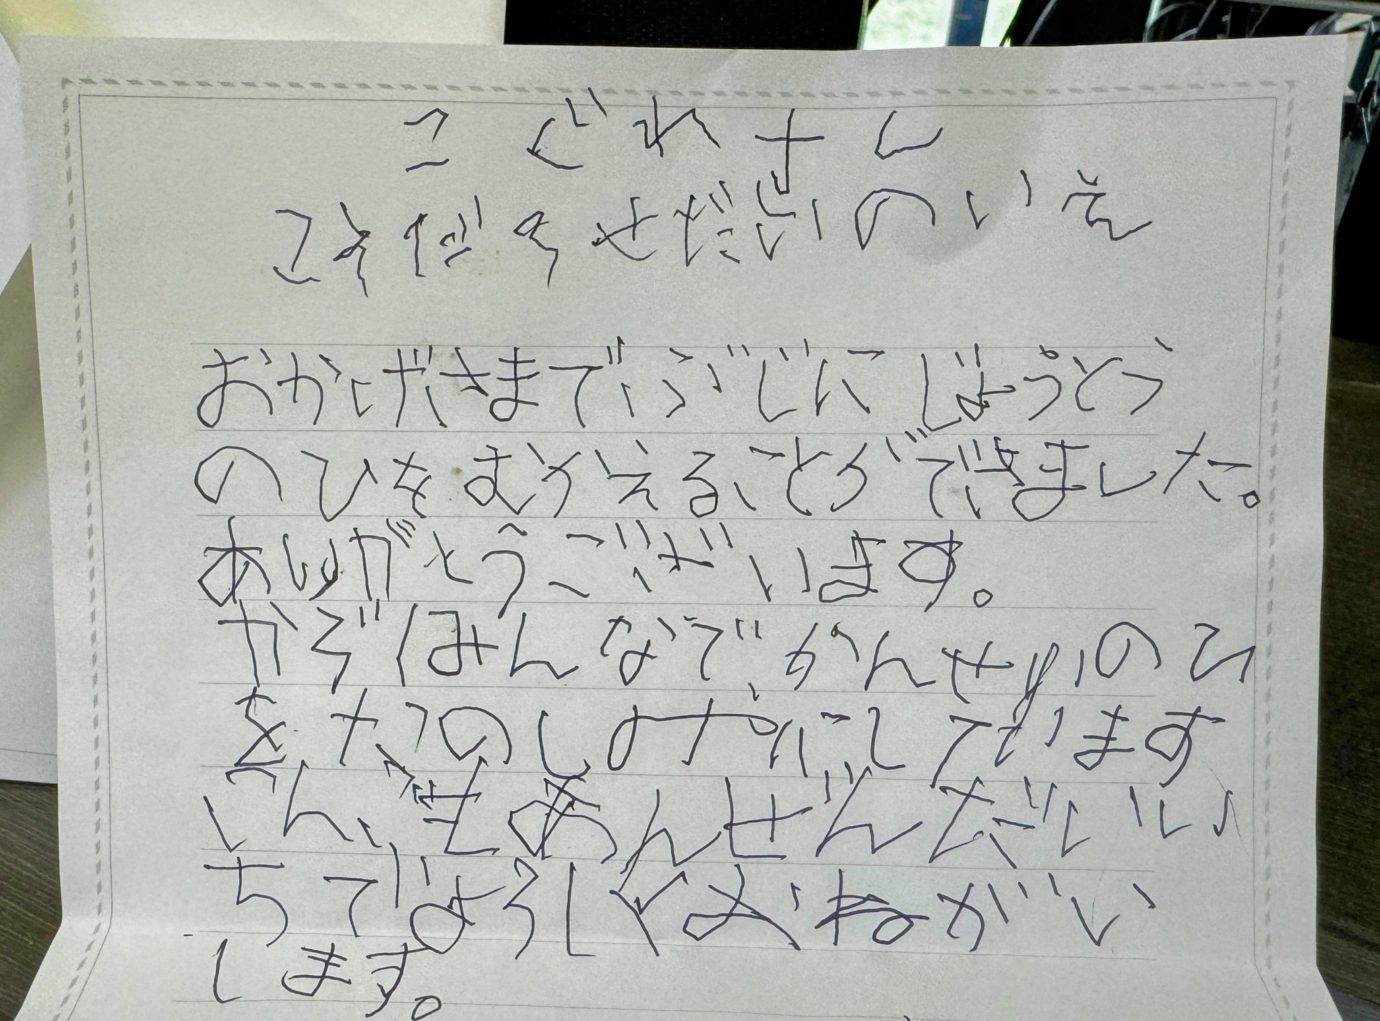 こ ぐ れ す し
こそだちせだいのいえ
おかげさまでぶじにじょうとう
のひをむかえることができました。
ありがとうございます。
かぞくみんなでかんせいのひ
をたのしみにしています
こんごもあんぜんだいい
ちでよろしくおねがい
します。